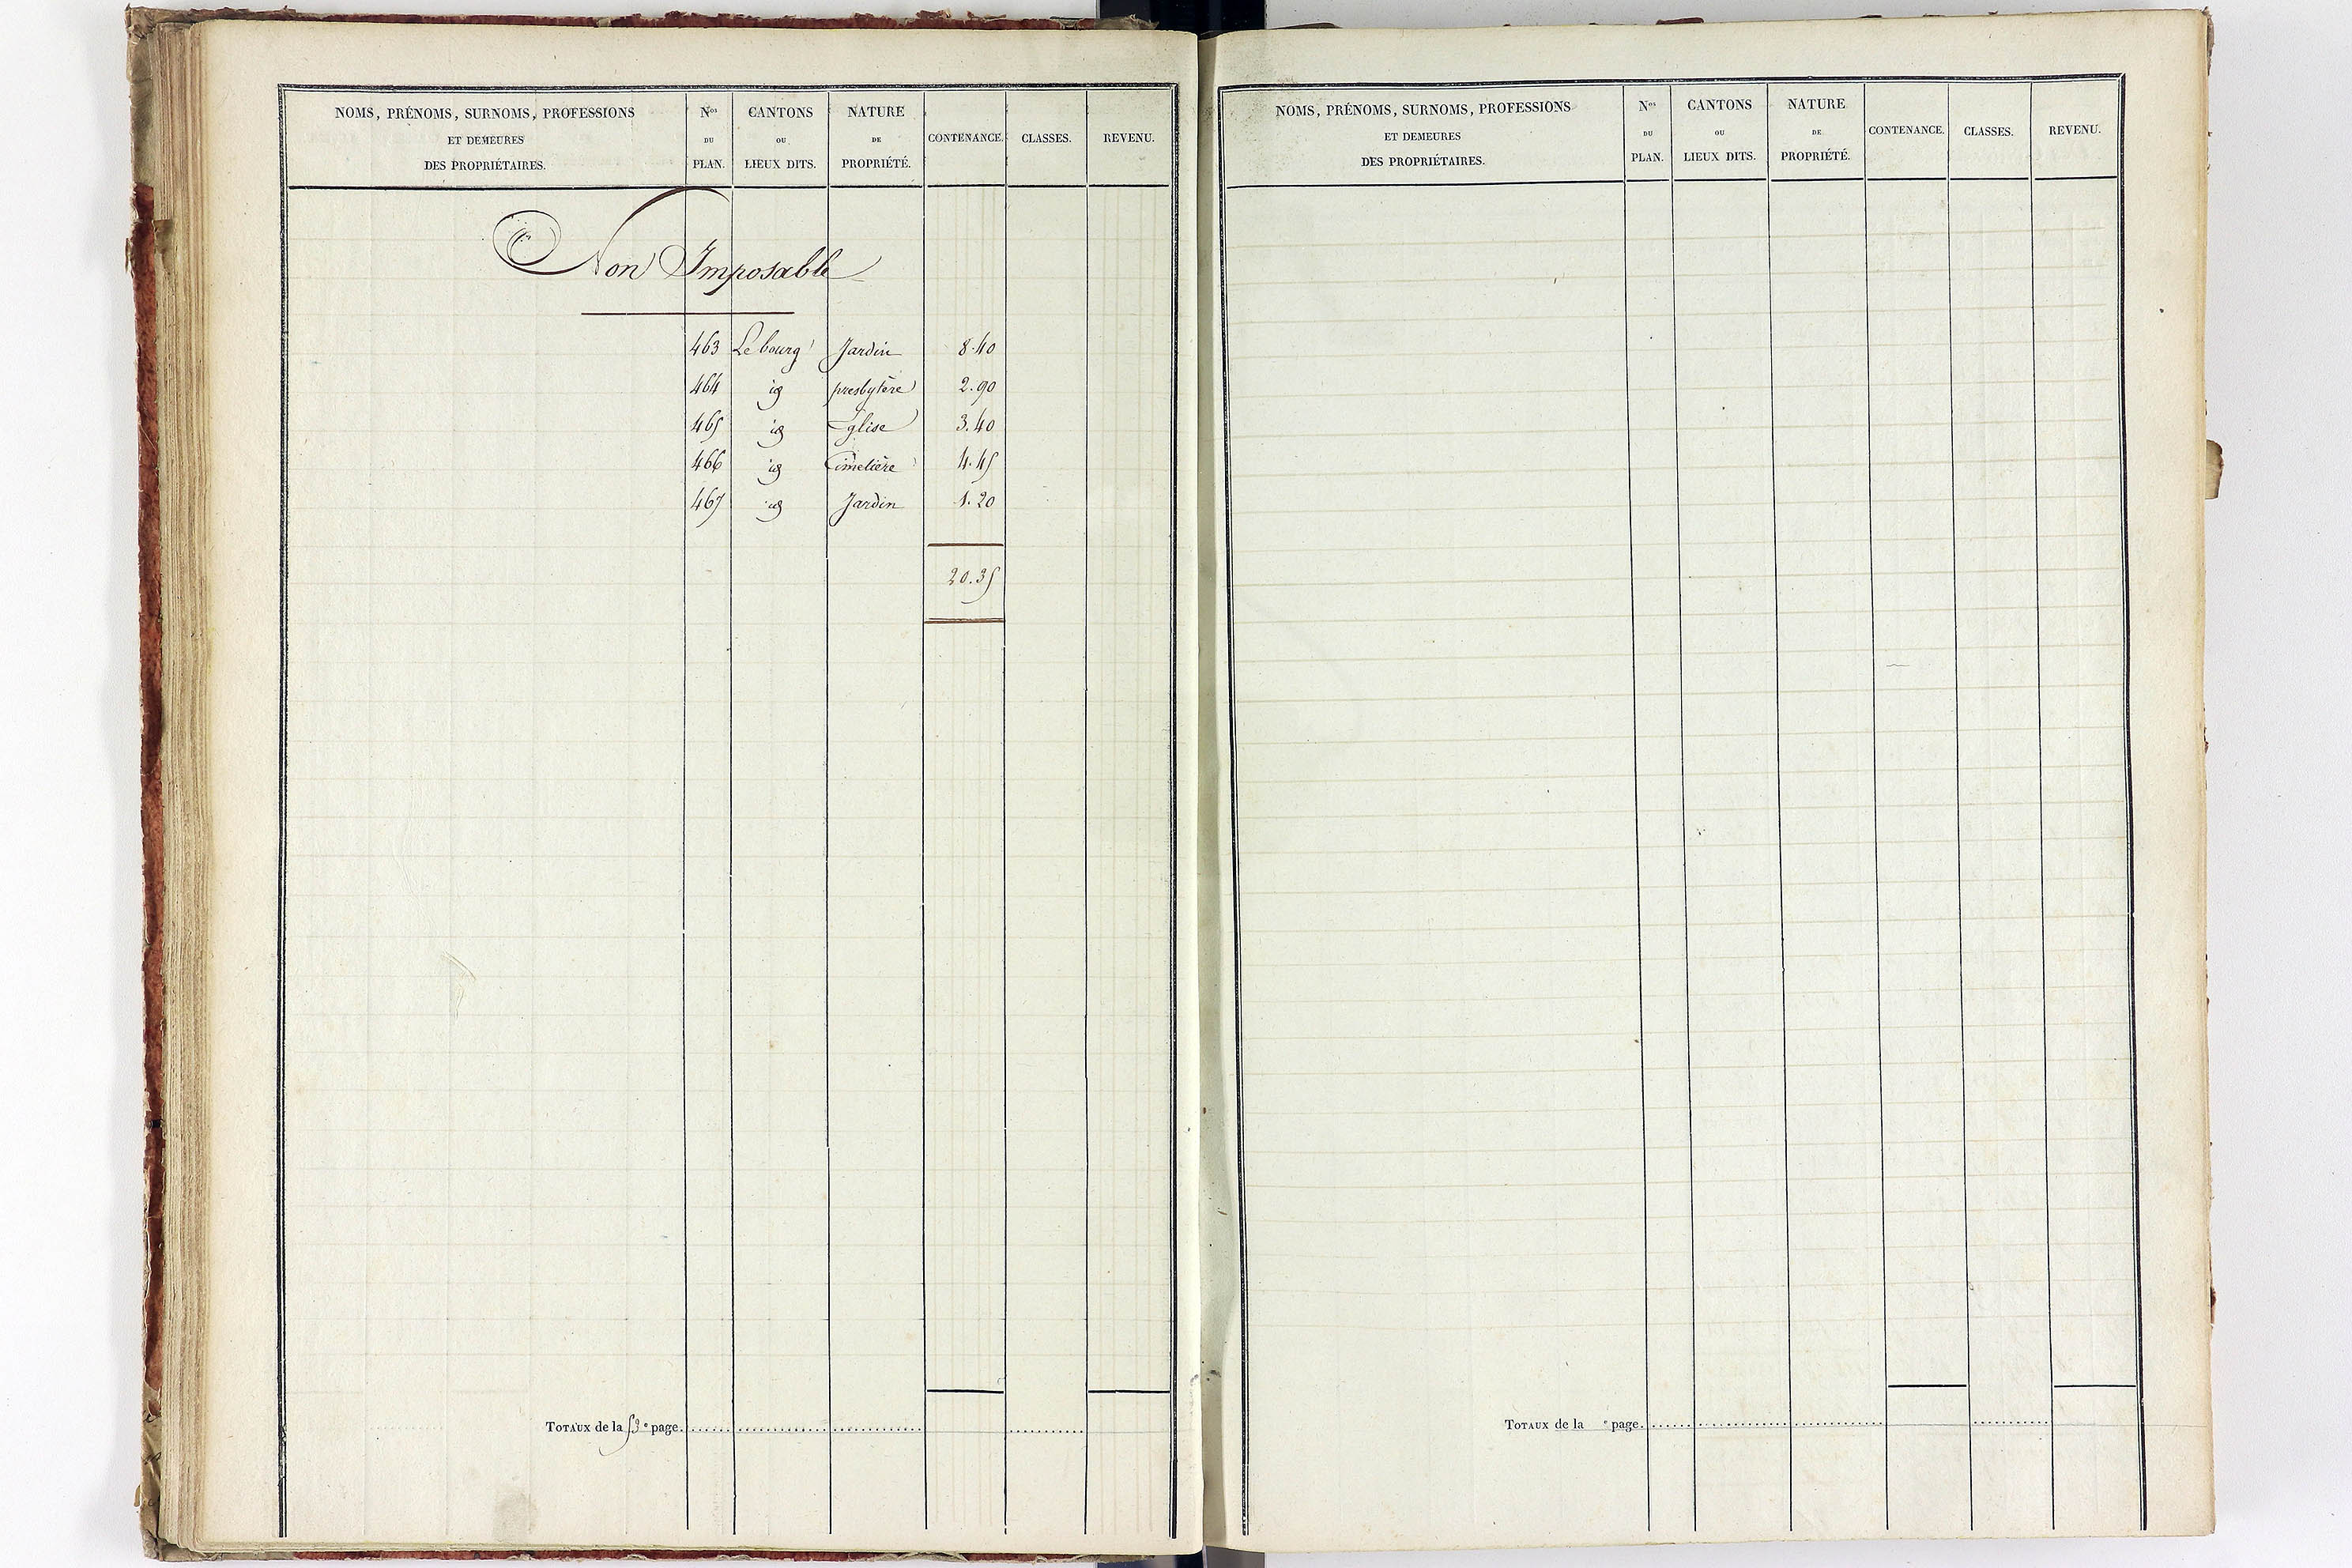 NOMS, PRÉNOMS, SURNOMS, PROFESSIONS
ET DEMEURES
DES PROPRIÉTAIRES.
Nos
DU
PLAN.
CANTONS
OU
LIEUX DITS.
NATURE
DE
PROPRIÉTÉ.
CONTENANCE.
CLASSES.
REVENU.
Non Imposable
463 Le bourg Jardin 8.40
464 id presbytère 2.90
465 id Église 3.40
466 id Cimetière 4.45
467 id Jardin 1.20
20.35
TOTAUX de la 53e page
NOMS, PRÉNOMS, SURNOMS, PROFESSIONS
ET DEMEURES
DES PROPRIÉTAIRES.
Nos
DU
PLAN.
CANTONS
OU
LIEUX DITS.
NATURE
DE
PROPRIÉTÉ.
CONTENANCE.
CLASSES.
REVENU.
TOTAUX de la e page